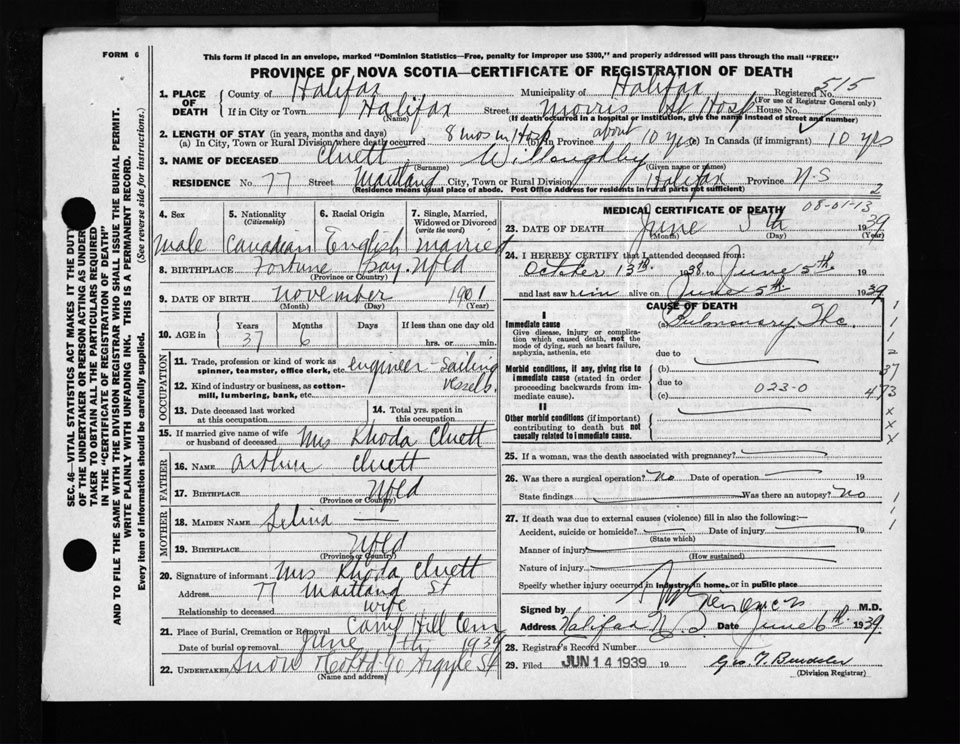 FORM 6
This form if placed in an envelope, marked "Dominion Statistics—Free, penalty for improper use $300," and properly addressed will pass through the mail "FREE"
PROVINCE OF NOVA SCOTIA—CERTIFICATE OF REGISTRATION OF DEATH
SEC. 46—VITAL STATISTICS ACT MAKES IT THE DUTY
OF THE UNDERTAKER OR PERSON ACTING AS UNDER-
TAKER TO OBTAIN ALL THE PARTICULARS REQUIRED
IN THE "CERTIFICATE OF REGISTRATION OF DEATH"
AND TO FILE THE SAME WITH THE DIVISION REGISTRAR WHO SHALL ISSUE THE BURIAL PERMIT.
WRITE PLAINLY WITH UNFADING INK. THIS IS A PERMANENT RECORD.
Every item of information should be carefully supplied. (See reverse side for instructions.)
1. PLACE OF DEATH County of Halifax Municipality of Halifax Registered No. 515
(For use of Registrar General only)
If in City or Town Halifax Street Morris St Hosp House No.
(Name) (If death occurred in a hospital or institution, give the name instead of street and number)
2. LENGTH OF STAY (in years, months and days)
(a) In City, Town or Rural Division where death occurred 8 mos in Hosp (b) in Province about 10 yrs (c) In Canada (if immigrant) 10 yrs
3. NAME OF DECEASED Cluett Willoughby
(Surname) (Given name or names)
RESIDENCE No. 77 Street Maitland City, Town or Rural Division Halifax Province N.S 2
(Residence means usual place of abode. Post Office Address for residents in rural parts not sufficient)
4. Sex Male
5. Nationality (Citizenship) Canadian
6. Racial Origin English
7. Single, Married, Widowed or Divorced (write the word) Married
8. BIRTHPLACE Fortune Bay. Nfld
(Province or Country)
9. DATE OF BIRTH November 1901
(Month) (Day) (Year)
10. AGE in Years 37 Months 6 Days If less than one day hrs. or min.
OCCUPATION
11. Trade, profession or kind of work as spinner, teamster, office clerk, etc. Engineer - Sailing Vessels.
12. Kind of industry or business, as cotton-mill, lumbering, bank, etc.
13. Date deceased last worked at this occupation
14. Total yrs. spent in this occupation
15. If married give name of wife or husband of deceased Mrs Rhoda Cluett
FATHER
16. NAME Arthur Cluett
17. BIRTHPLACE Nfld
(Province or Country)
MOTHER
18. MAIDEN NAME Selina —
19. BIRTHPLACE Nfld
(Province or Country)
20. Signature of informant Mrs Rhoda Cluett
Address 77 Maitland St
Relationship to deceased wife
21. Place of Burial, Cremation or Removal Camp Hill Cem
Date of burial or removal June 7th 1939
22. UNDERTAKER Snow & Co Ltd 90 Argyle St
(Name and address)
MEDICAL CERTIFICATE OF DEATH 08-01-13
23. DATE OF DEATH June 5th 1939
(Month) (Day) (Year)
24. I HEREBY CERTIFY that I attended deceased from:
October 13th. 1938 to June 5th.
and last saw him alive on June 5th 1939
CAUSE OF DEATH
I
Immediate cause
Give disease, injury or complication which caused death, not the mode of dying, such as heart failure, asphyxia, asthenia, etc
(a) Pulmonary Tbc.
due to
Morbid conditions, if any, giving rise to immediate cause (stated in order proceeding backwards from immediate cause).
(b)
due to
(c) 023-0
II
Other morbid conditions (if important) contributing to death but not causally related to immediate cause.
1
1
1
2
37
473
x
x
x
25. If a woman, was the death associated with pregnancy?
26. Was there a surgical operation? No Date of operation 19
State findings Was there an autopsy? No
1
1
1
27. If death was due to external causes (violence) fill in also the following:—
Accident, suicide or homicide? Date of injury 19
(State which)
Manner of injury
(How sustained)
Nature of injury
Specify whether injury occurred in industry, in home, or in public place
Signed by M.D.
Address Halifax N.S Date June 6th. 1939.
28. Registrar's Record Number
29. Filed JUN 14 1939 19
(Division Registrar)